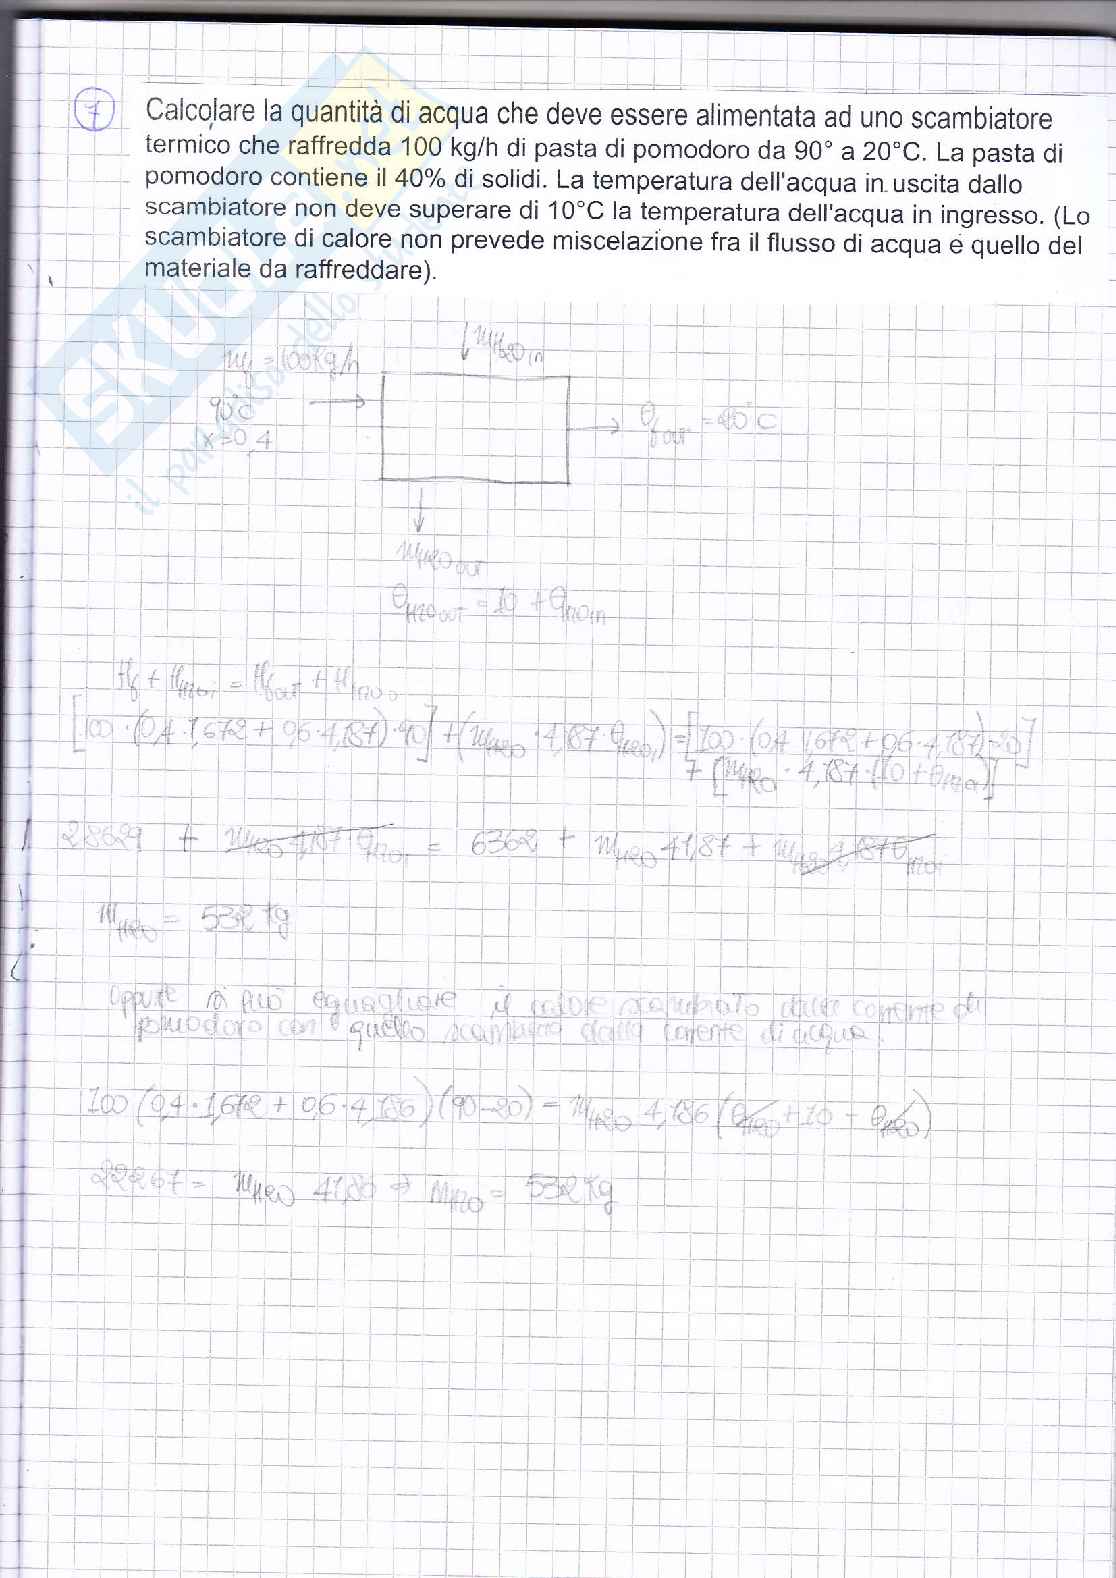 7
Calcolare la quantità di acqua che deve essere alimentata ad uno scambiatore
termico che raffredda 100 kg/h di pasta di pomodoro da 90° a 20°C. La pasta di
pomodoro contiene il 40% di solidi. La temperatura dell'acqua in uscita dallo
scambiatore non deve superare di 10°C la temperatura dell'acqua in ingresso. (Lo
scambiatore di calore non prevede miscelazione fra il flusso di acqua e quello del
materiale da raffreddare).
SKUOLA.net
il paradiso dello studente
m_H2O in
m_f = 100 kg/h
90°C
x = 0,4
θ_f out = 20°C
m_H2O out
θ_H2O out = 10 + θ_H2O in
H_f + H_H2O i = H_f out + H_H2O o
[100·(0,4·1,672 + 0,6·4,187)·90] + (m_H2O·4,187·θ_H2O i) = [100·(0,4·1,672 + 0,6·4,187)·20]
+ [m_H2O·4,187·(10 + θ_H2O i)]
28629 + m_H2O 4,187 θ_H2O i = 6362 + m_H2O 41,87 + m_H2O 4,187 θ_H2O i
m_H2O = 532 kg
Oppure si può eguagliare il calore scambiato dalla corrente di
pomodoro con quello scambiato dalla corrente di acqua.
100 (0,4·1,672 + 0,6·4,186) (90-20) = m_H2O 4,186 (θ_H2O + 10 - θ_H2O)
22267 = m_H2O 41,86 ⇒ m_H2O = 532 kg